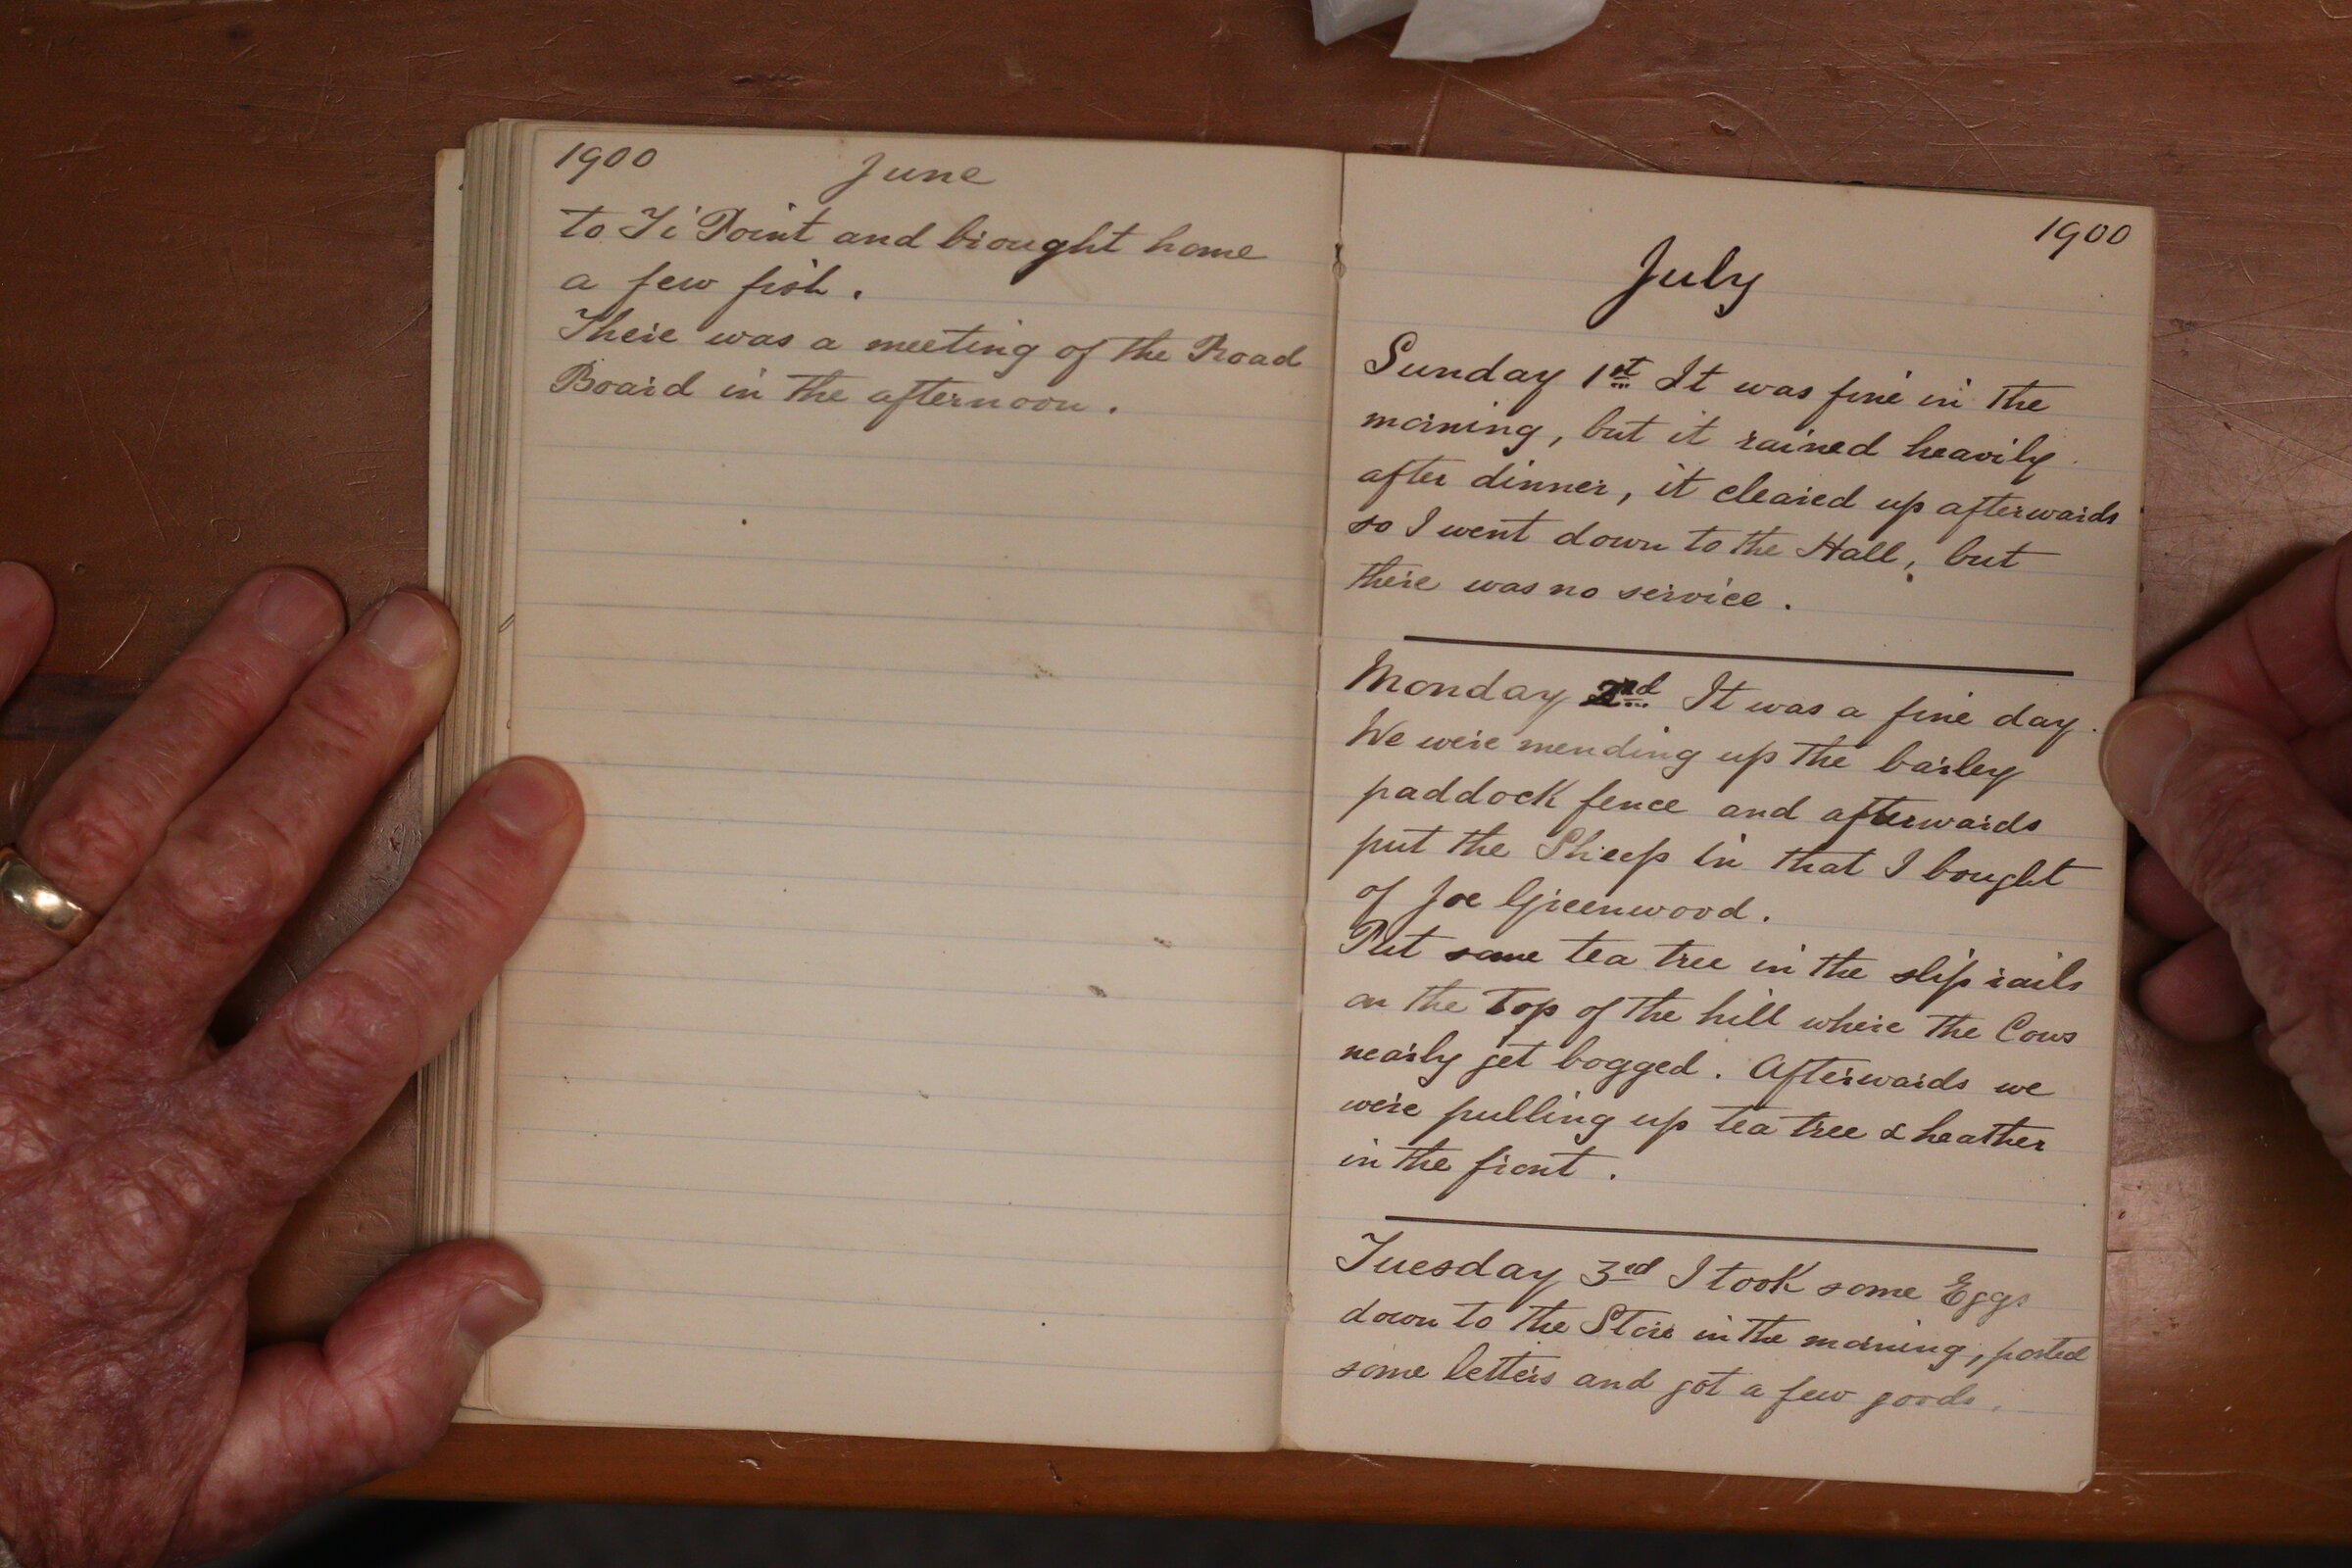 1900 June
to Ti Point and brought home
a few fish.
There was a meeting of the Road
Board in the afternoon.
1900
July
Sunday 1st It was fine in the
morning, but it rained heavily
after dinner, it cleared up afterwards
so I went down to the Hall, but
there was no service.
Monday 2nd It was a fine day.
We were mending up the barley
paddock fence and afterwards
put the Sheep in that I bought
of Joe Greenwood.
Put some tea tree in the slip rails
on the Top of the hill where the Cows
nearly get bogged. Afterwards we
were pulling up tea tree & heather
in the front.
Tuesday 3rd I took some Eggs
down to the Store in the morning, posted
some letters and got a few goods.